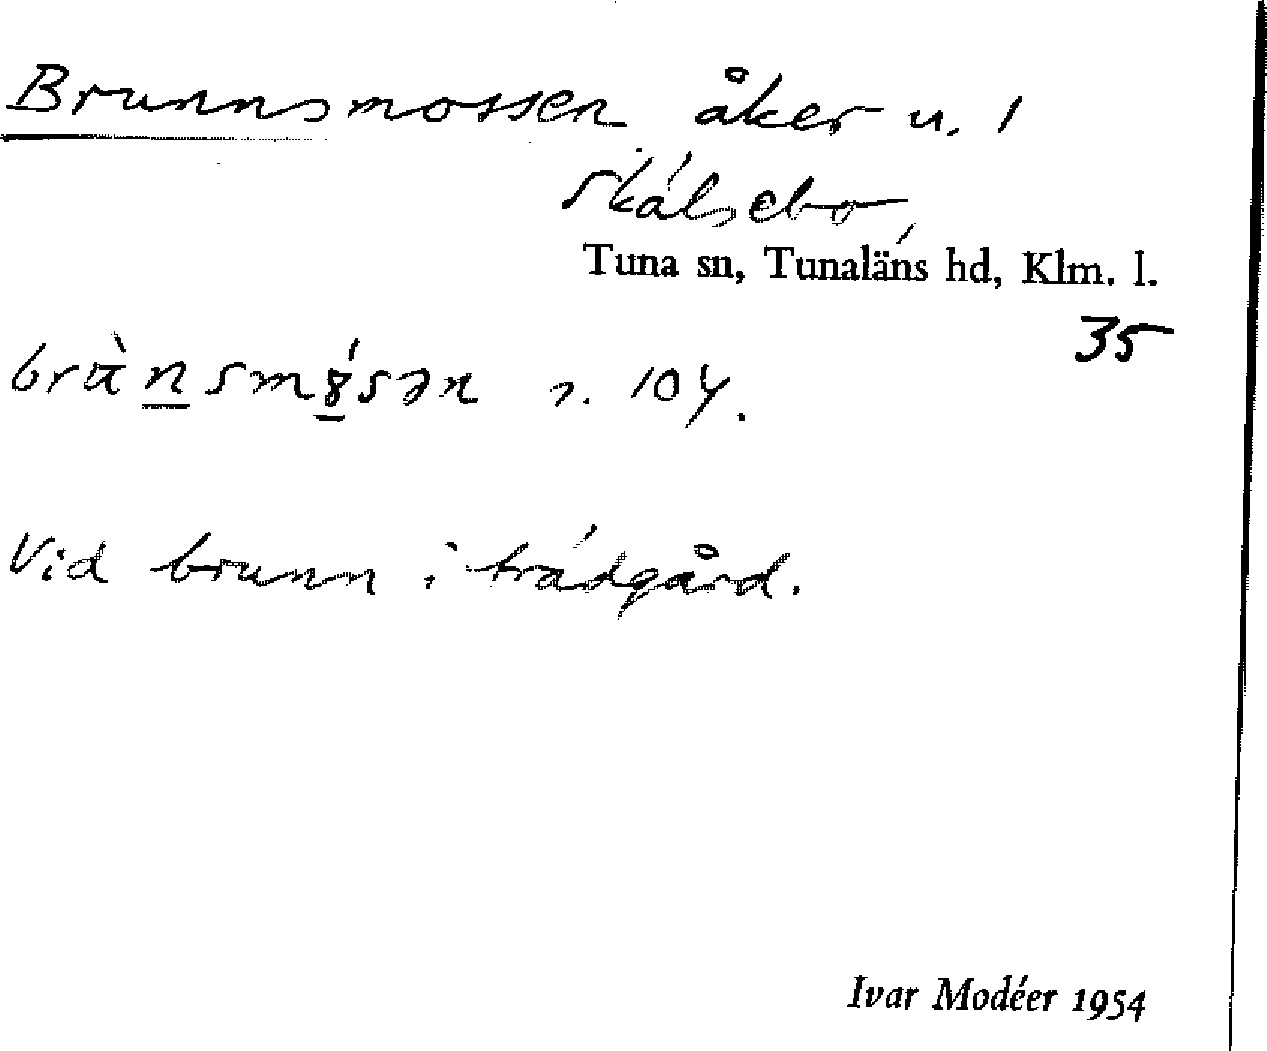 Brunnsmossen åker u. 1
Skälsebo,
Tuna sn, Tunaläns hd, Klm. l.
35
n. 104.
Vid brunn i trädgård.
Ivar Modéer 1954